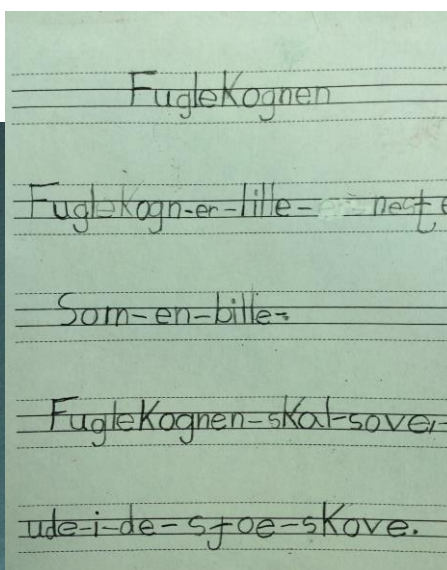 FugleKognen
FugleKogn-er-lille-
Som-en-bille-
FugleKognen-skal-sove
ude-i-de-stoe-skove.